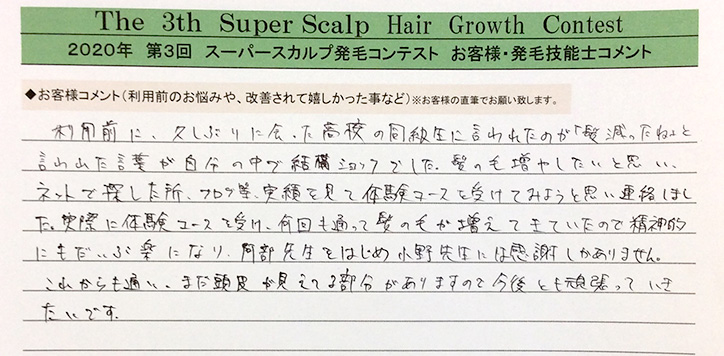 The 3th Super Scalp Hair Growth Contest
2020年 第3回 スーパースカルプ発毛コンテスト お客様・発毛技能士コメント
◆お客様コメント(利用前のお悩みや、改善されて嬉しかった事など)※お客様の直筆でお願い致します。
利用前に、久しぶりに会った高校の同級生に言われたのが「髪減ったね」と
言われた言葉が自分の中で結構ショックでした。髪の毛増やしたいと思い、
ネットで探した所、ブログ等、実績を見て体験コースを受けてみようと思い連絡しまし
た。実際に体験コースを受け、何回も通って髪の毛が増えてきていたので精神的
にもだいぶ楽になり、阿部先生をはじめ小野先生には感謝しかありません。
これからも通い、まだ頭皮が見えてる部分がありますので今後とも頑張っていき
たいです。